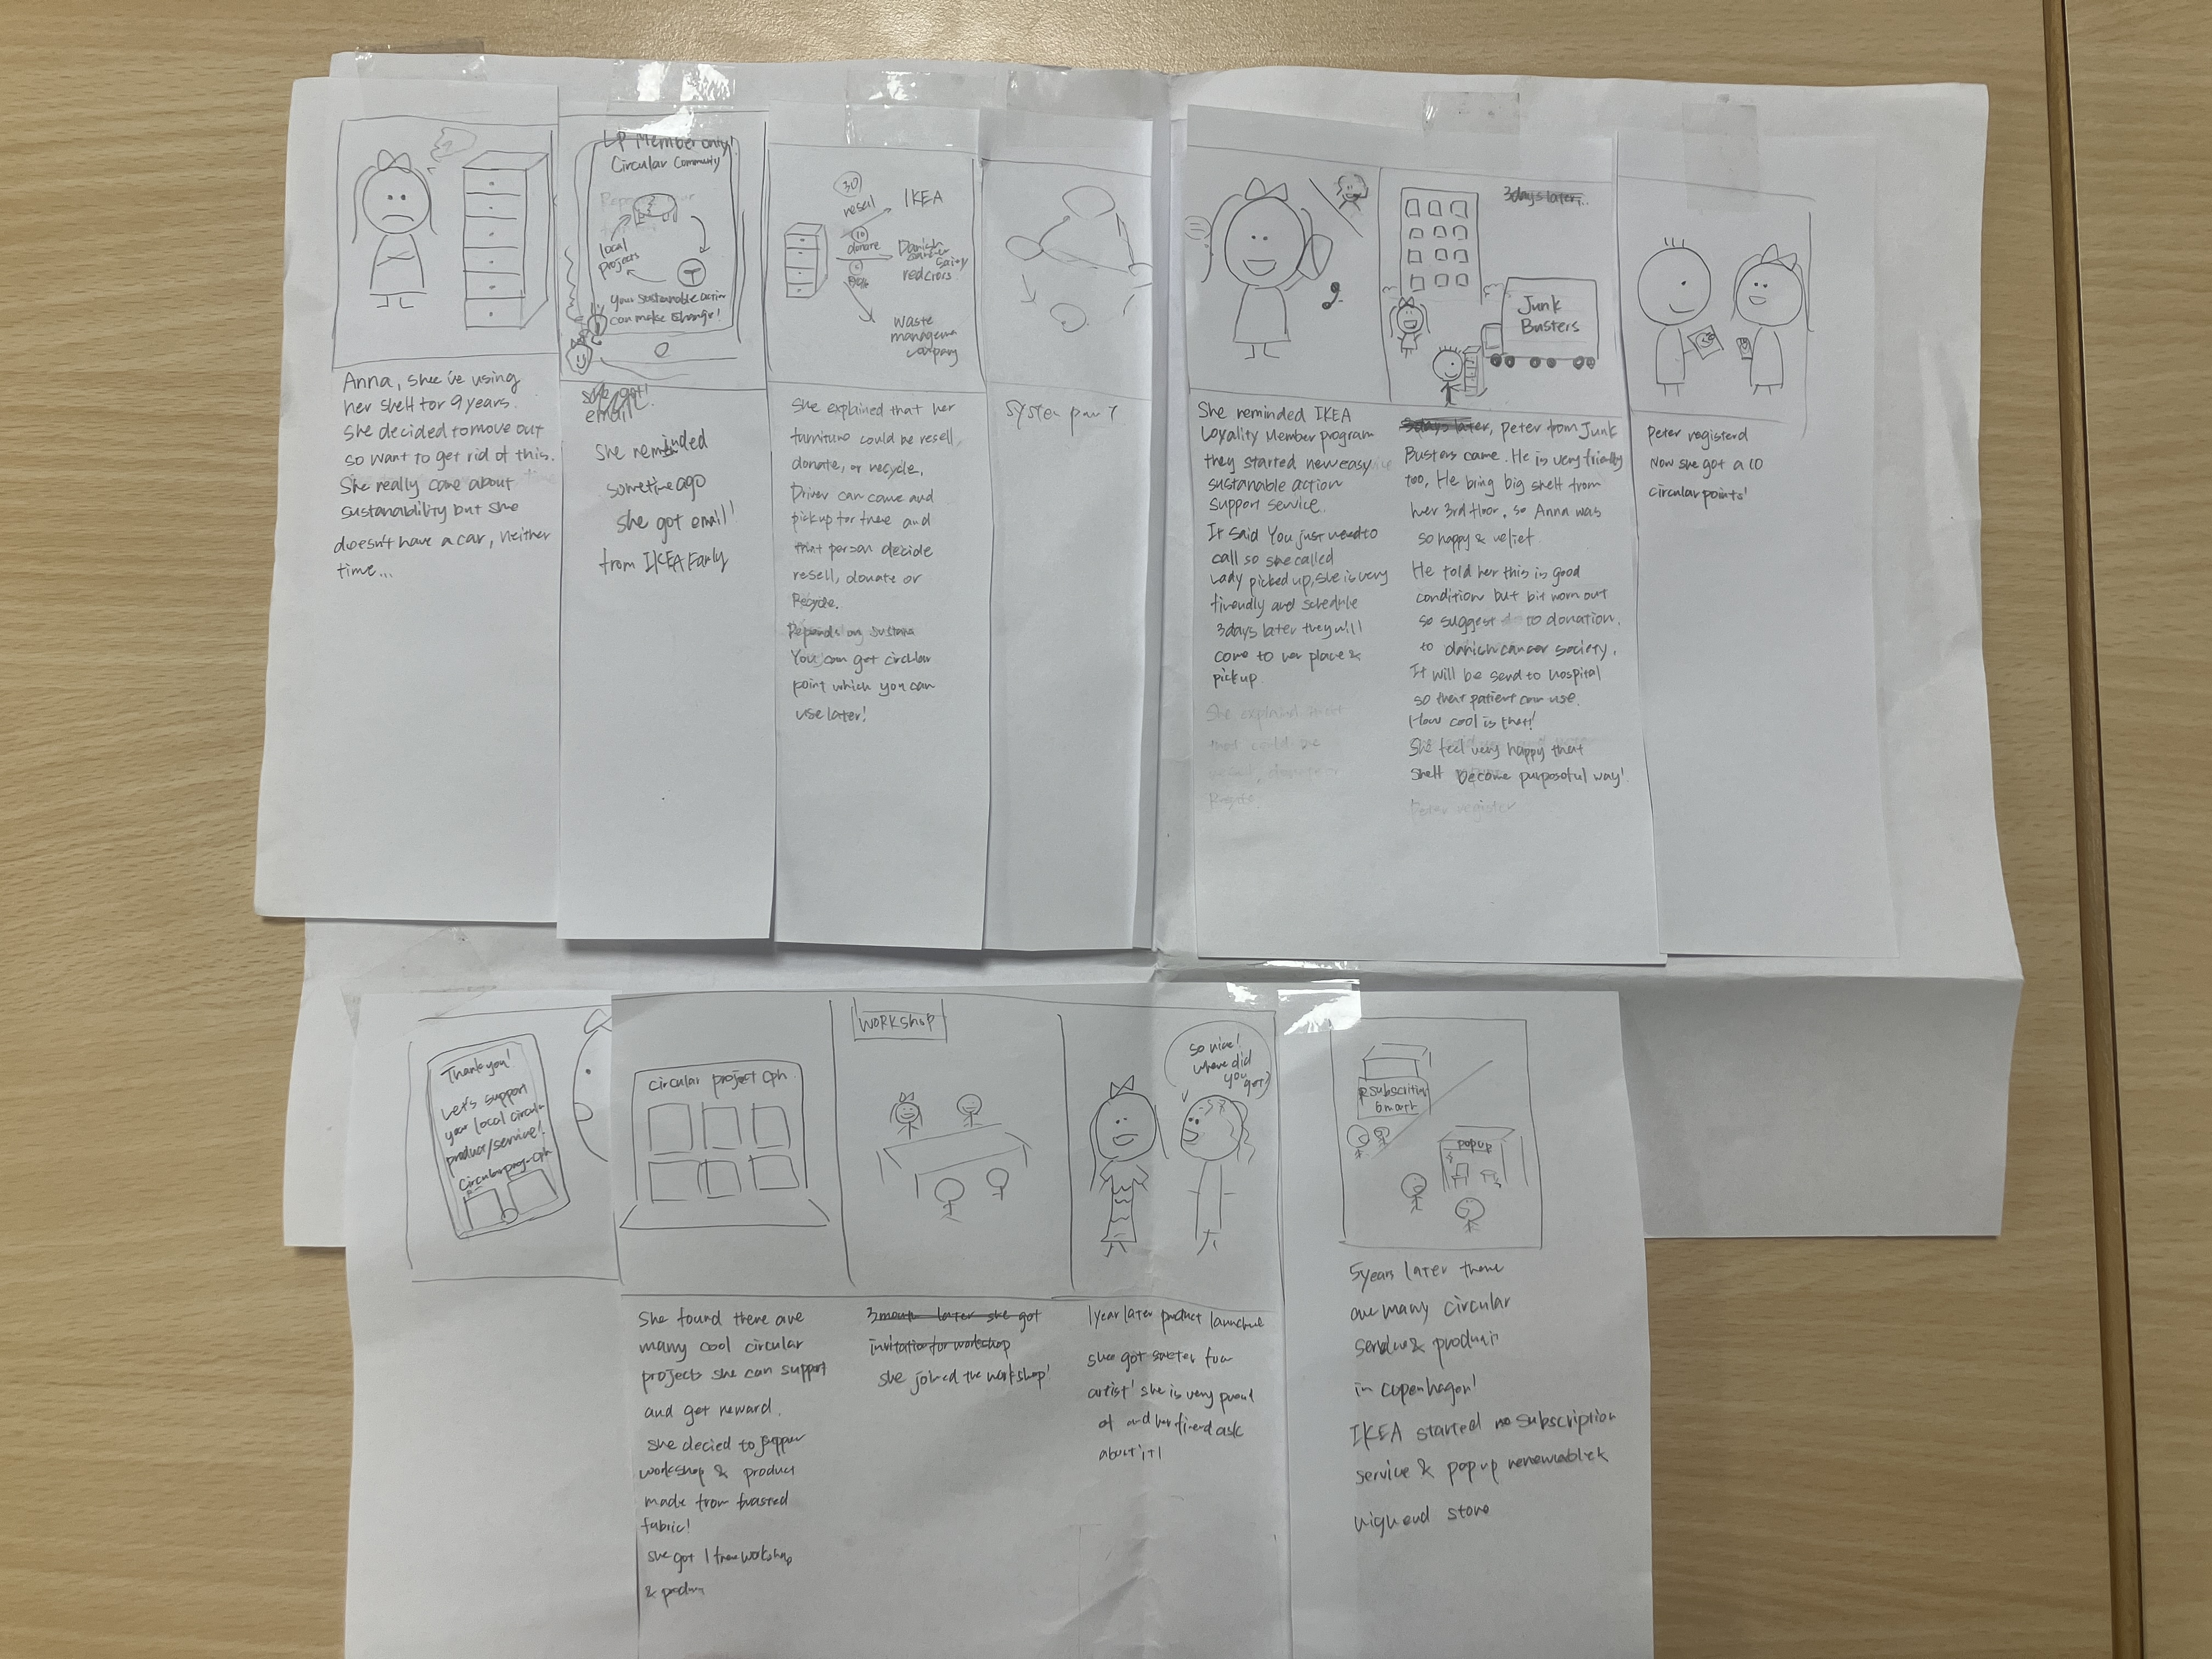 LP Member only!
Circular Community
local
projects
your sustainable action
can make change!
30
resell
IKEA
10
donate
Danish
cancer
society
red cross
waste
management
company
Junk
Busters
Anna, she is using
her shelf for 9 years.
She decided to move out
so want to get rid of this.
She really care about
sustanability but she
doesn't have a car, neither
time...
she got
email
she reminded
sometime ago
she got email!
from IKEA Family
She explained that her
furniture could be resell,
donate, or recycle.
Driver can come and
pickup for free and
that person decide
resell, donate or
Recycle.
You can get circular
point which you can
use later!
system part
She reminded IKEA
Loyality Member program
they started new easy
sustanable action
support service.
It said You just need to
call so she called
Lady picked up, she is very
friendly and schedule
3days later they will
come to her place &
pickup.
She explained that
resell, donate or
3days later...
3days later, Peter from Junk
Busters came. He is very friendly
too, He bring big shelf from
her 3rd floor, so Anna was
so happy & relief.
He told her this is good
condition but bit worn out
so suggest to donation.
to danish cancer society.
It will be send to hospital
so that patient can use.
How cool is that!
She feel very happy that
shelf become purposeful way!
Peter register
Peter registerd
Now she got a 10
circular points!
Thank you!
Let's support
your local circular
product/service!
Circular project cph
circular project cph
WORKSHOP
So nice!
where did
you
get?
popup
She found there are
many cool circular
projects she can support
and get reward.
she decied to support
workshop & product
made from wasted
fabric!
she got 1 free workshop
& product
3 month later she got
invitation for workshop
she joined the workshop!
1year later product launched
she got sweater from
artist! she is very proud
of and her friend ask
about it!
5years later there
are many circular
service & product
in copenhagen!
IKEA started subscription
service & popup
high end store